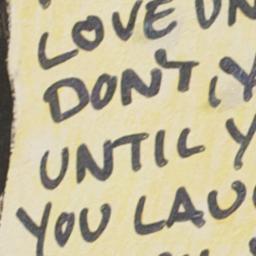 LOVE UN
DON'T, Y
UNTIL Y
YOU LAU